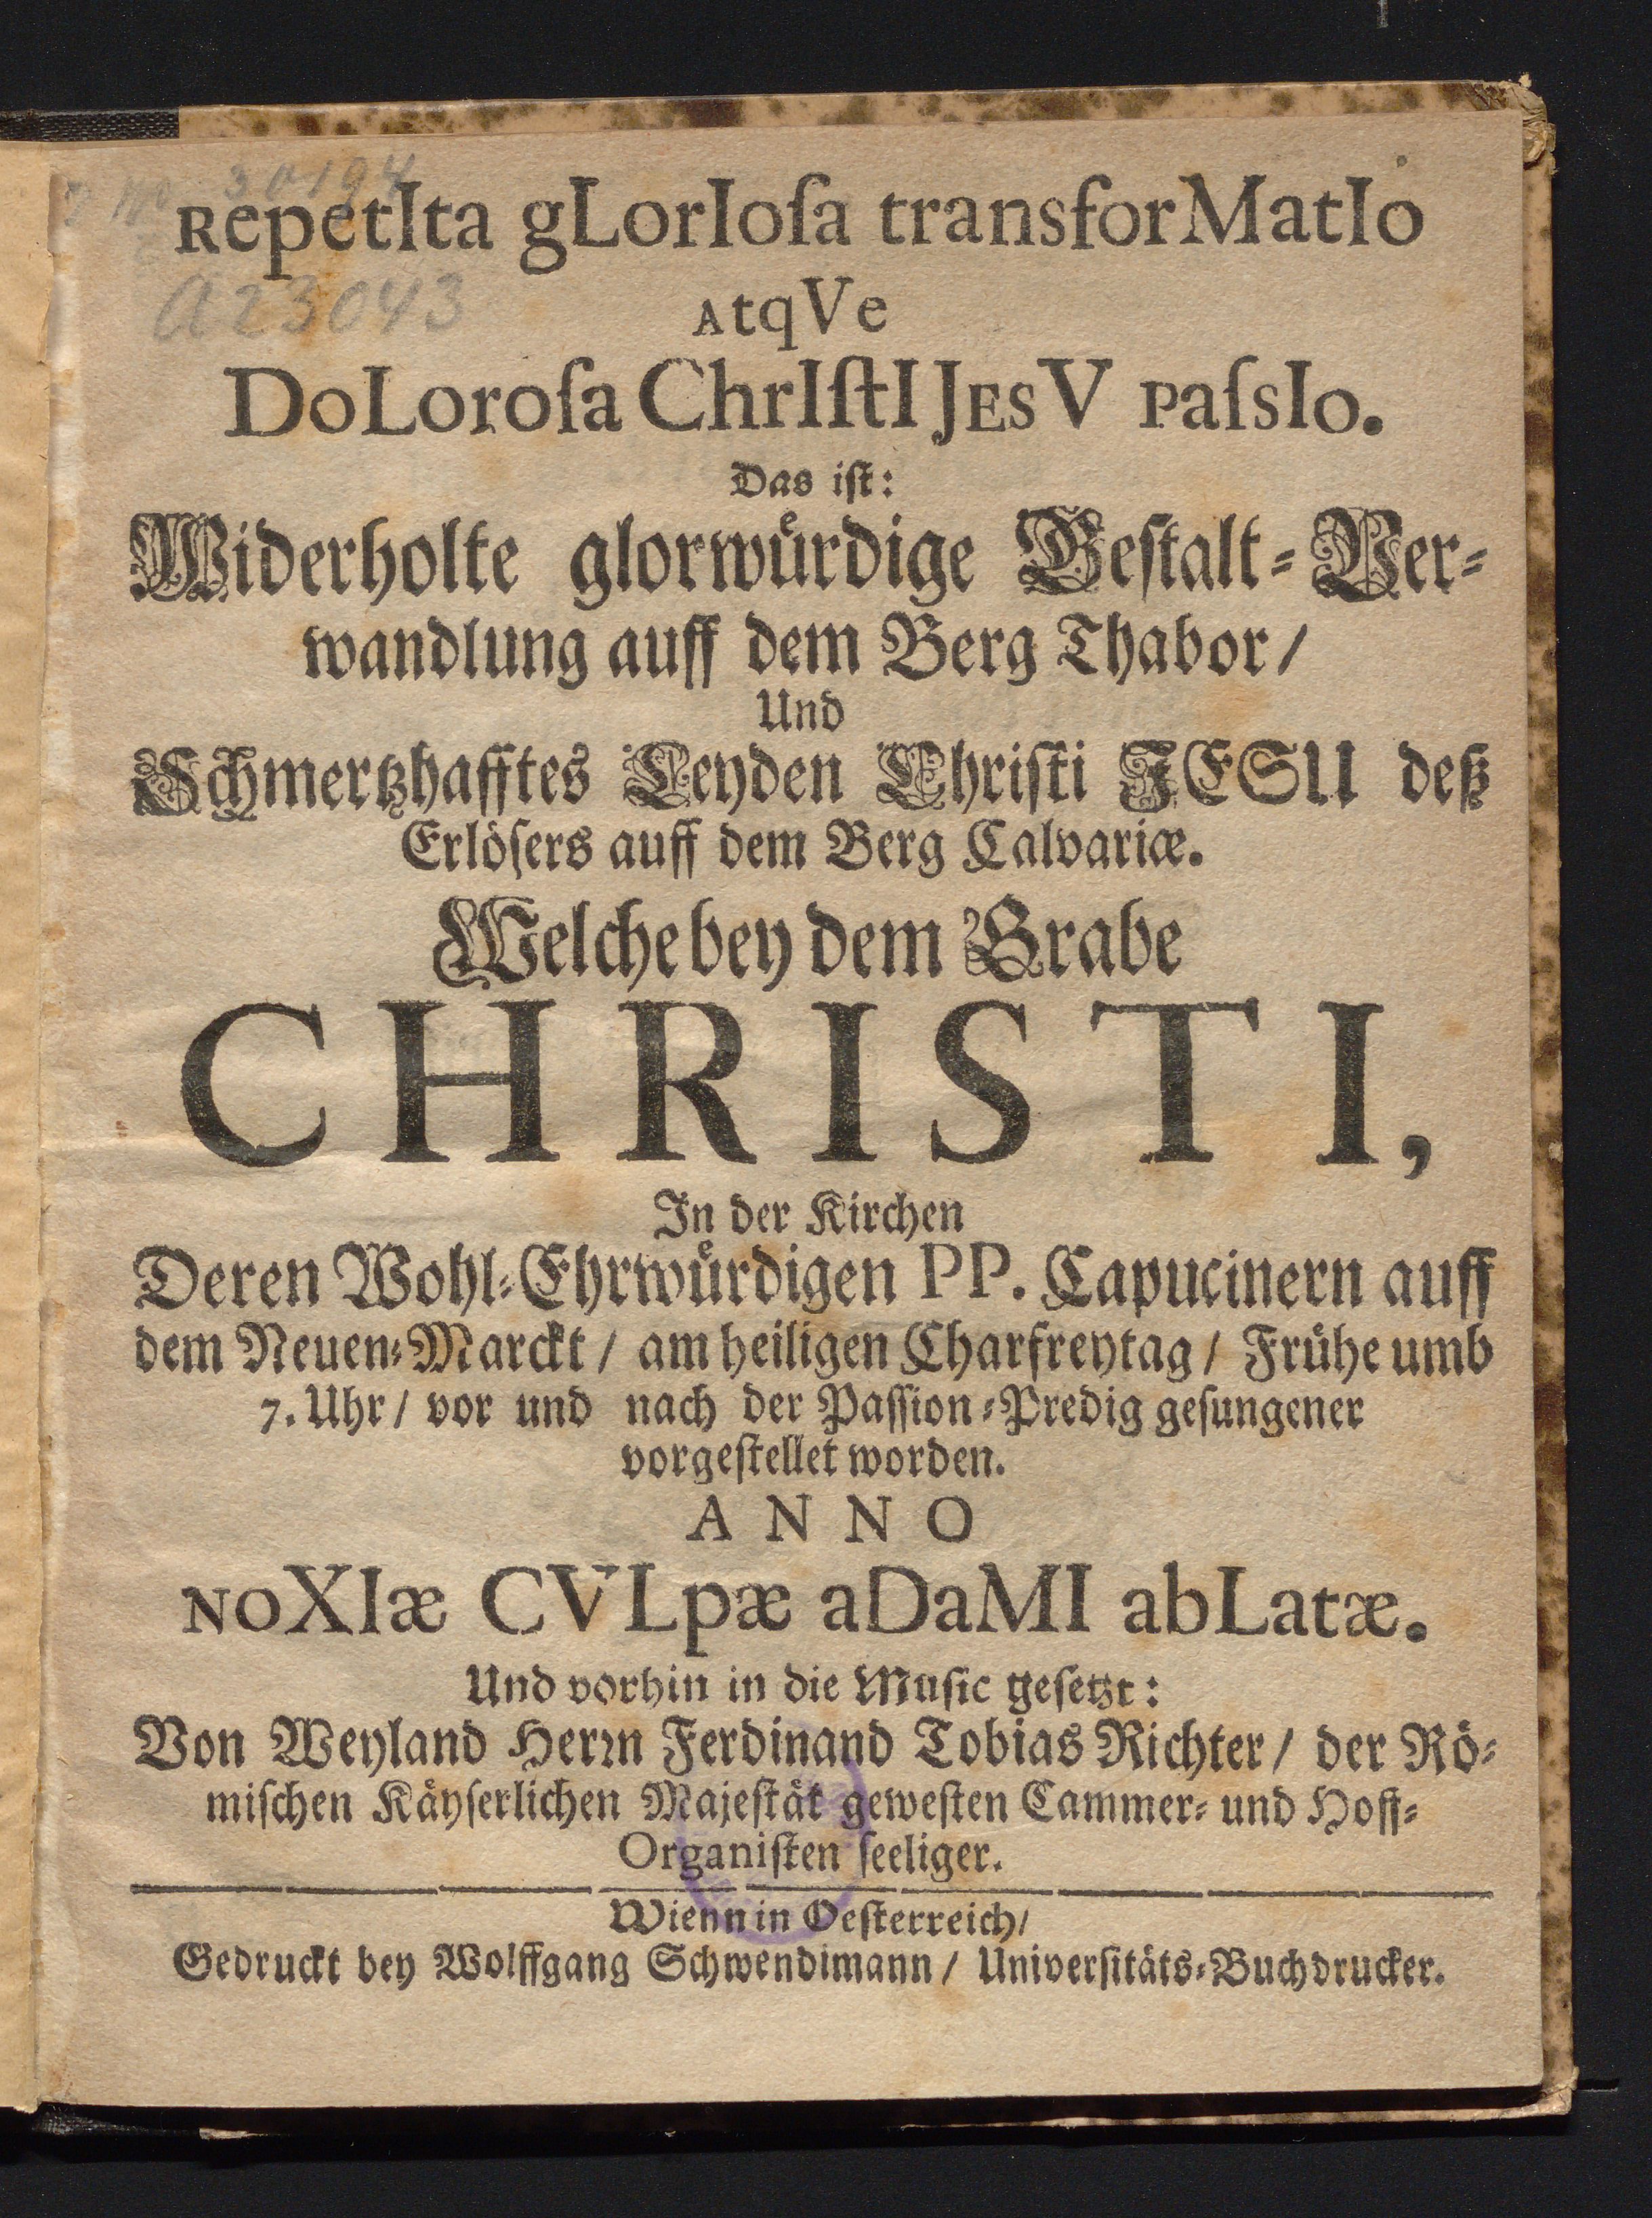 30194
RepetIta gLorIoſa transforMatIo
A23043
AtqVe
DoLoroſa ChrIſtI JEsV paſsIo.
Das iſt:
Widerholte glorwuͤrdige Geſtalt-Ver-
wandlung auff dem Berg Thabor/
Und
Schmertzhafftes Leyden Chriſti JESU deß
Erlöſers auff dem Berg Calvariæ.
Welche bey dem Grabe
CHRISTI,
In der Kirchen
Deren Wohl-Ehrwuͤrdigen PP. Capucinern auff
dem Neuen-Marckt/ am heiligen Charfreytag/ Frühe umb
7. Uhr/ vor und nach der Paſſion-Predig geſungener
vorgeſtellet worden.
ANNO
NOXIæ CVLpæ aDaMI abLatæ.
Und vorhin in die Muſic geſetzt:
Von Weyland Herꝛn Ferdinand Tobias Richter/ der Rö-
miſchen Käyſerlichen Majeſtät geweſten Cammer- und Hoff-
Organiſten ſeeliger.
Wienn in Oeſterreich/
Gedruckt bey Wolffgang Schwendimann/ Univerſitäts-Buchdrucker.